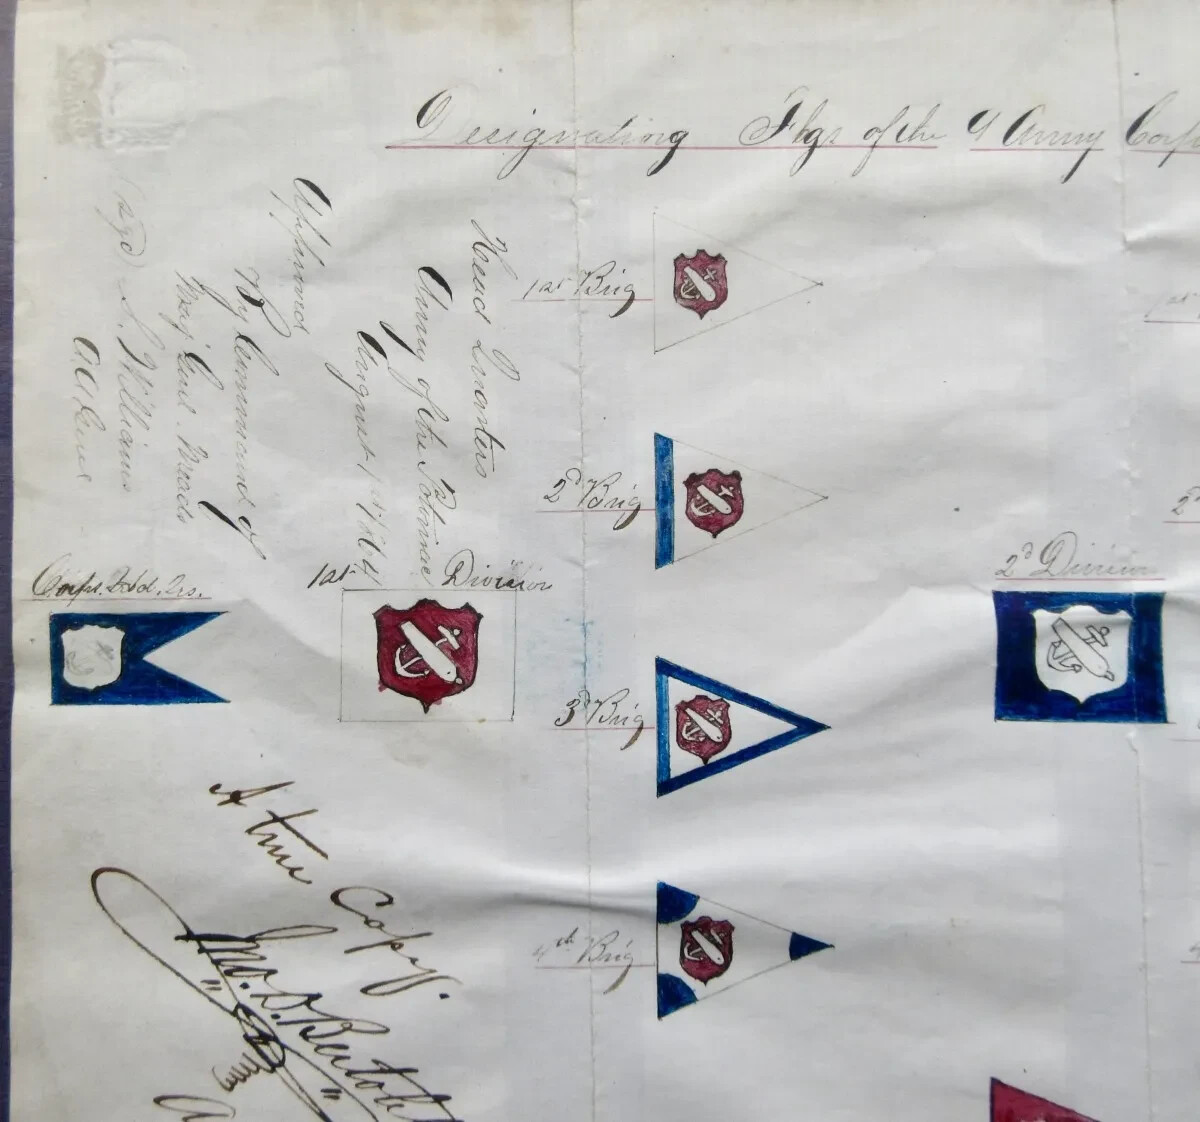 Designating Flgs of the 9 Army Corps
Head Quarters
Army of the Potomac
August 1 1864
Approved
By Command of
Maj Genl Meade
(sgd) S. Williams
A A Genl
1st Brig
2d Brig
3d Brig
4th Brig
Corps. Hd. Qrs.
1st Division
2d Division
A true Copy.